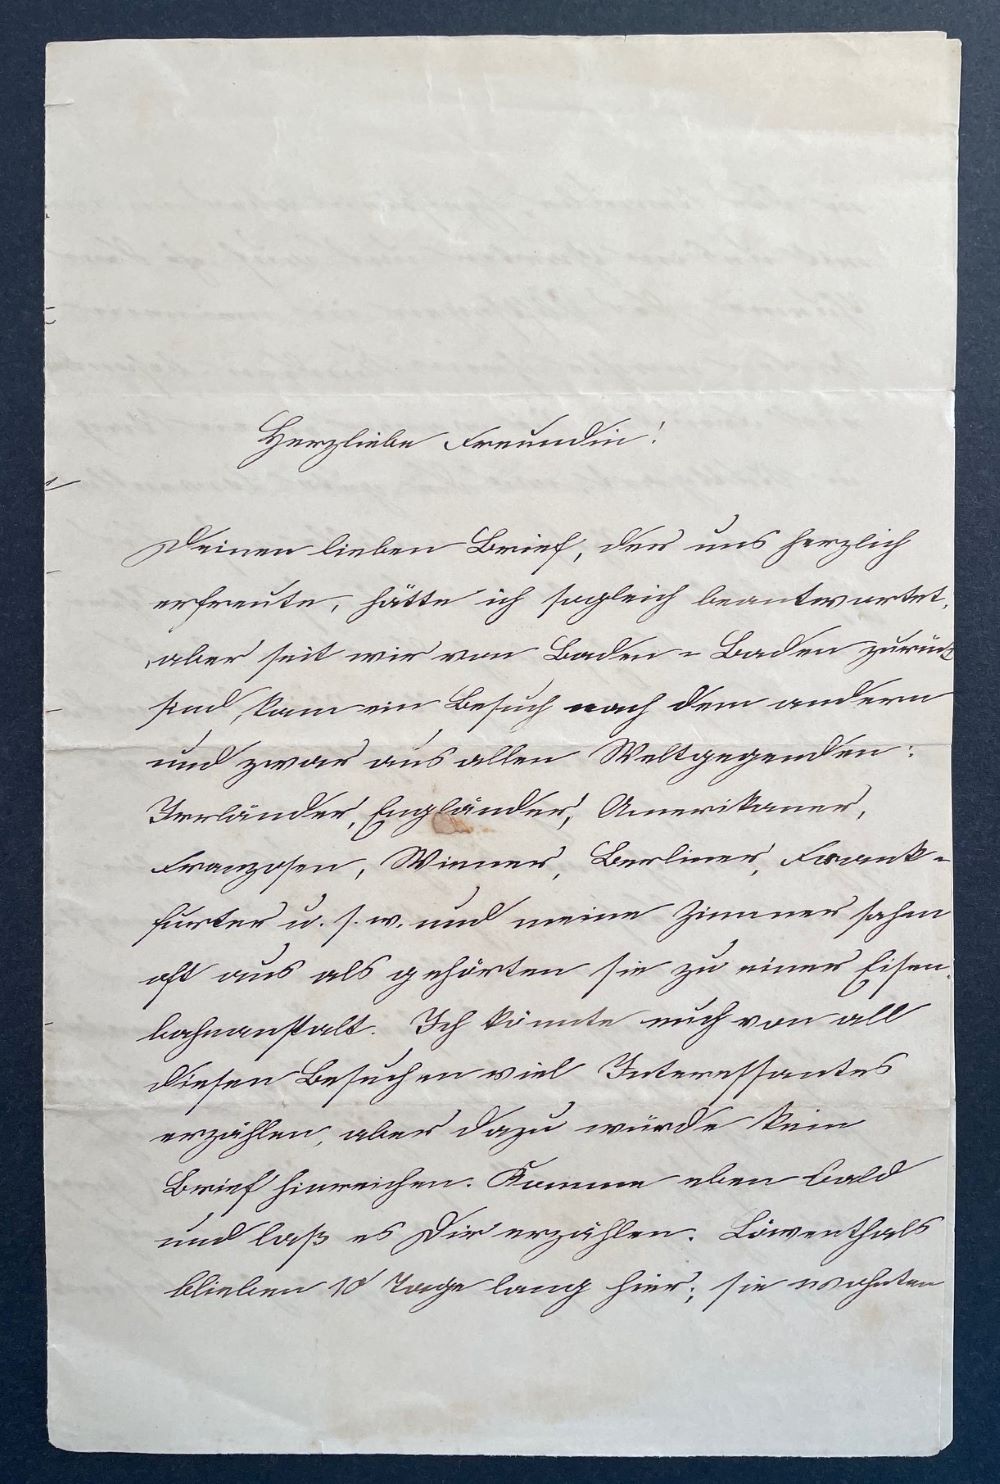 Herzliebe Freundin!
Deinen lieben Brief, der uns herzlich
erfreute, hätte ich sogleich beantwortet,
aber seit wir von Baden-Baden zurück
sind, kam ein Besuch nach dem andern
und zwar aus allen Weltgegenden:
Irrländer, Engländer, Amerikaner,
Franzosen, Wiener, Berliner, Frank-
furter u. s. w. und meine Zimmer sahen
oft aus als gehörten sie zu einer Eisen-
bahnanstalt. Ich könnte euch von all
diesen Besuchen viel Interessantes
erzählen, aber dazu würde kein
Brief hinreichen. Komme eben bald
und laß es Dir erzählen. Löwenthals
blieben 10 Tage lang hier; sie wohnten